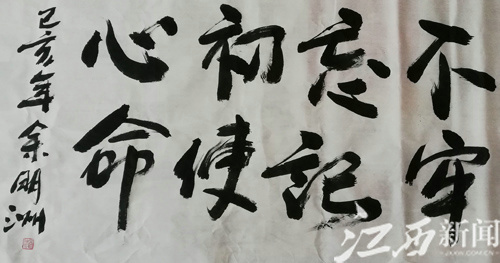 不忘初心
牢记使命
己亥年余明洲
江西新闻